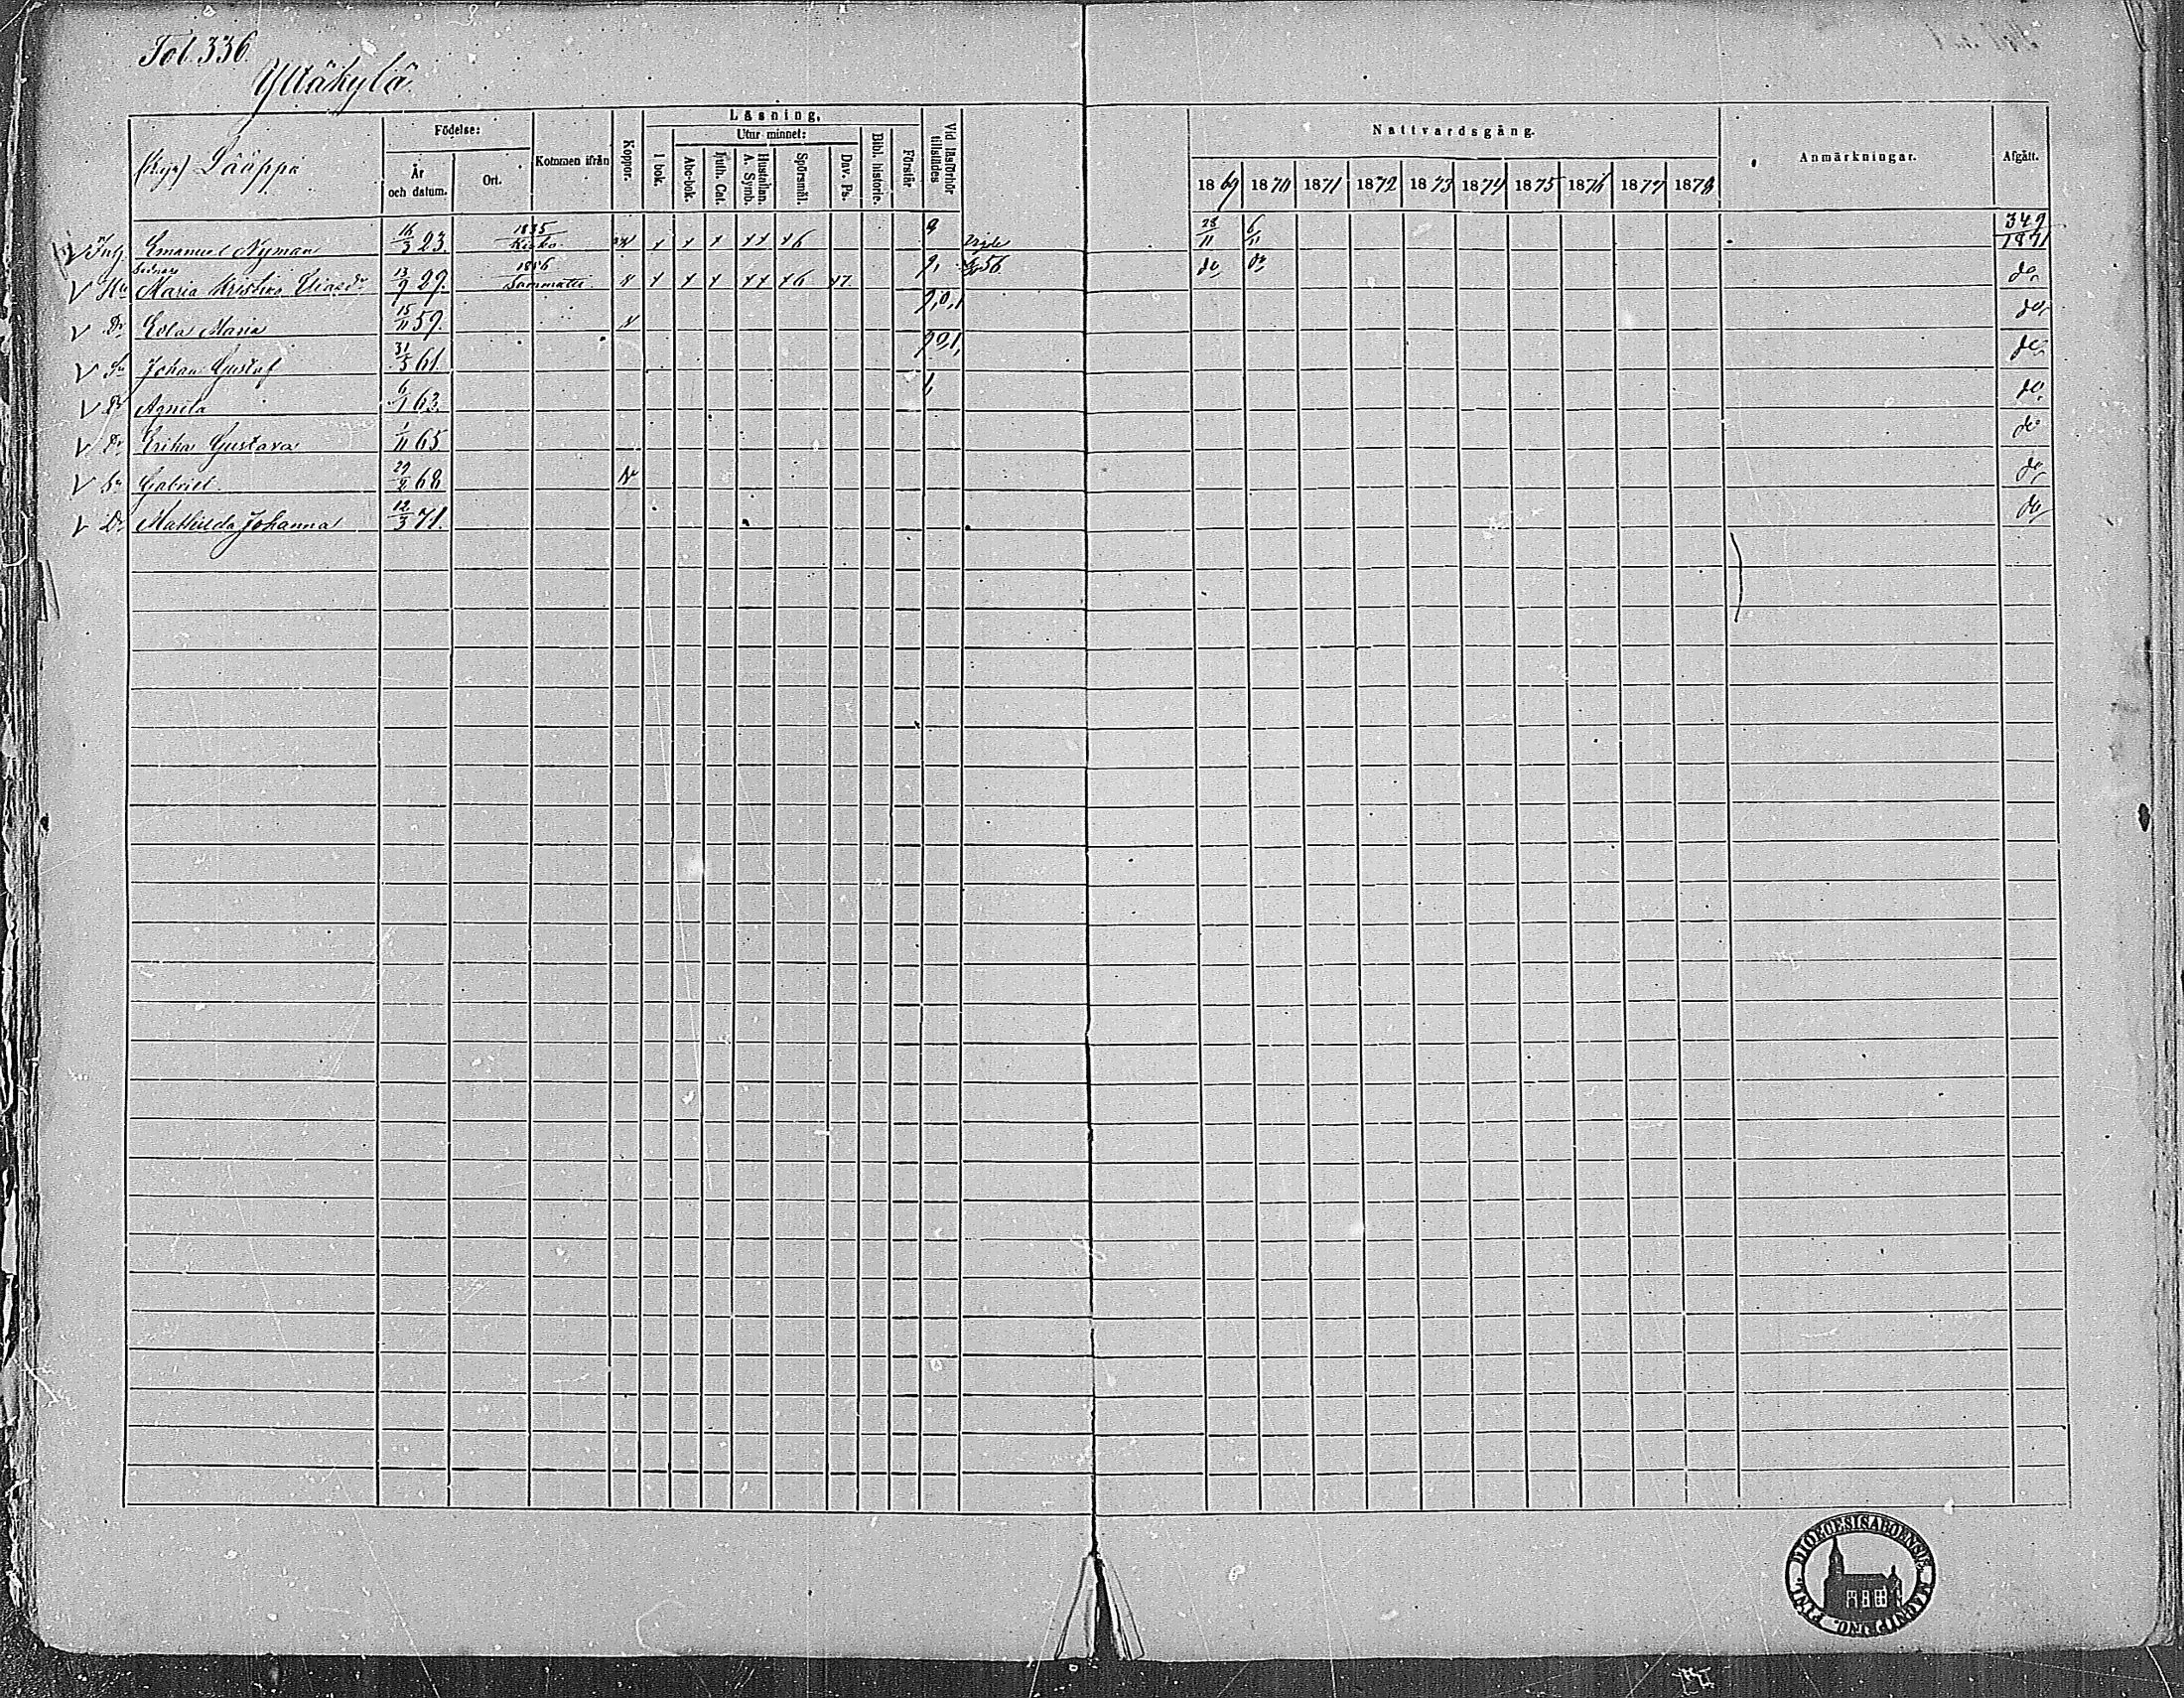 Fol. 336.
Yltäkylä.
Lääppi
Födelse:
År och datum.
Ort.
Kommen ifrån
Koppor.
Läsning.
I bok.
Utur minnet:
Abc-bok.
Luth. Cat.
Hustaflan. A. Symb.
Spörsmål.
Dav. Ps.
Bibl. historie.
Förestår
Vid läsförhör tillstädes
Nattvardsgång.
1869 1870 1871 1872 1873 1874 1875 1876 1877 1878
Anmärkningar.
Afgått.
V Inh. Emanuel Nyman 16/3 23. Kisko x x x x x x 6 9 Vigde 28/11 6/11 349/1871
V Hu Maria Kristina Eliasdr 13/9 29. 1856 Sammatti x x x x x x x 6 x7 56 do do do
V Dr Eva Maria 15/11 59. do
V Sn Johan Gustaf 31/5 61. do
V Dr Agnita 6/1 63. do
V Dr Erika Gustava 1/11 65. do
V Sn Gabriel 29/2 68 do
V Dr Mathilda Johanna 12/3 71. do
DIOECESIS ABOENSIS MAGNI PRINC. FINL.